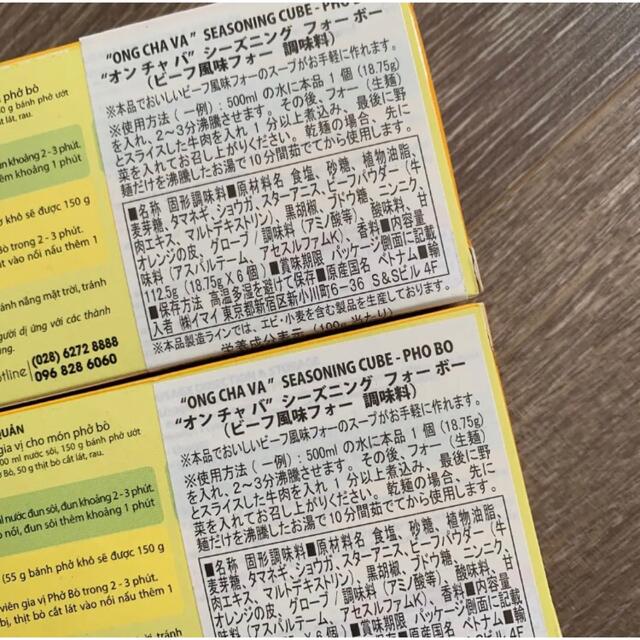 "ONG CHA VA" SEASONING CUBE - PHO BO
"オン チャ バ" シーズニング フォー ボー
(ビーフ風味フォー 調味料)
※本品でおいしいビーフ風味フォーのスープがお手軽に作れます。
※使用方法(一例):500mlの水に本品1個(18.75g)
を入れ、2~3分沸騰させます。その後、フォー(生麺)
とスライスした牛肉を入れ1分以上煮込み、最後に野
菜を入れてお召し上がりください。乾麺の場合、先に
麺だけを沸騰したお湯で10分間茹でてから使用します。
■名称 固形調味料■原材料名 食塩、砂糖、植物油脂、
麦芽糖、タマネギ、ショウガ、スターアニス、ビーフパウダー(牛
肉エキス、マルトデキストリン)、黒胡椒、ブドウ糖、ニンニク、
オレンジの皮、グローブ/調味料(アミノ酸等)、酸味料、甘
味料(アスパルテーム、アセスルファムK)、香料■内容量
112.5g(18.75g×6個)■賞味期限 パッケージ側面に記載
■保存方法 高温多湿を避けて保存■原産国名 ベトナム■輸
入者 ㈱イマイ 東京都新宿区新小川町6-36 S&Sビル4F
※本品製造ラインでは、エビ・小麦を含む製品を生産しております。
栄養成分表示(100g当たり)
phở bò
50 g bánh phở ướt
cắt lát, rau.
un khoảng 2 - 3 phút.
hêm khoảng 1 phút
khô sẽ được 150 g
Bò trong 2 - 3 phút.
vào nồi nấu thêm 1
ánh nắng mặt trời, tránh
gười dị ứng với các thành
otline
(028) 6272 8888
096 828 6060
"ONG CHA VA" SEASONING CUBE - PHO BO
"オン チャ バ" シーズニング フォー ボー
(ビーフ風味フォー 調味料)
※本品でおいしいビーフ風味フォーのスープがお手軽に作れます。
※使用方法(一例):500mlの水に本品1個(18.75g)
を入れ、2~3分沸騰させます。その後、フォー(生麺)
とスライスした牛肉を入れ1分以上煮込み、最後に野
菜を入れてお召し上がりください。乾麺の場合、先に
麺だけを沸騰したお湯で10分間茹でてから使用します。
■名称 固形調味料■原材料名 食塩、砂糖、植物油脂、
麦芽糖、タマネギ、ショウガ、スターアニス、ビーフパウダー(牛
肉エキス、マルトデキストリン)、黒胡椒、ブドウ糖、ニンニク、
オレンジの皮、グローブ/調味料(アミノ酸等)、酸味料、甘
味料(アスパルテーム、アセスルファムK)、香料■内容量
QUÂN
gia vị cho món phở bò
00 ml nước sôi, 150 g bánh phở ướt
Bò, 50 g thịt bò cắt lát, rau.
ml nước đun sôi, đun khoảng 2 - 3 phút.
nồi, đun sôi thêm khoảng 1 phút
(55 g bánh phở khô sẽ được 150 g
viên gia vị Phở Bò trong 2 - 3 phút.
bị, thịt bò cắt lát vào nồi nấu thêm 1